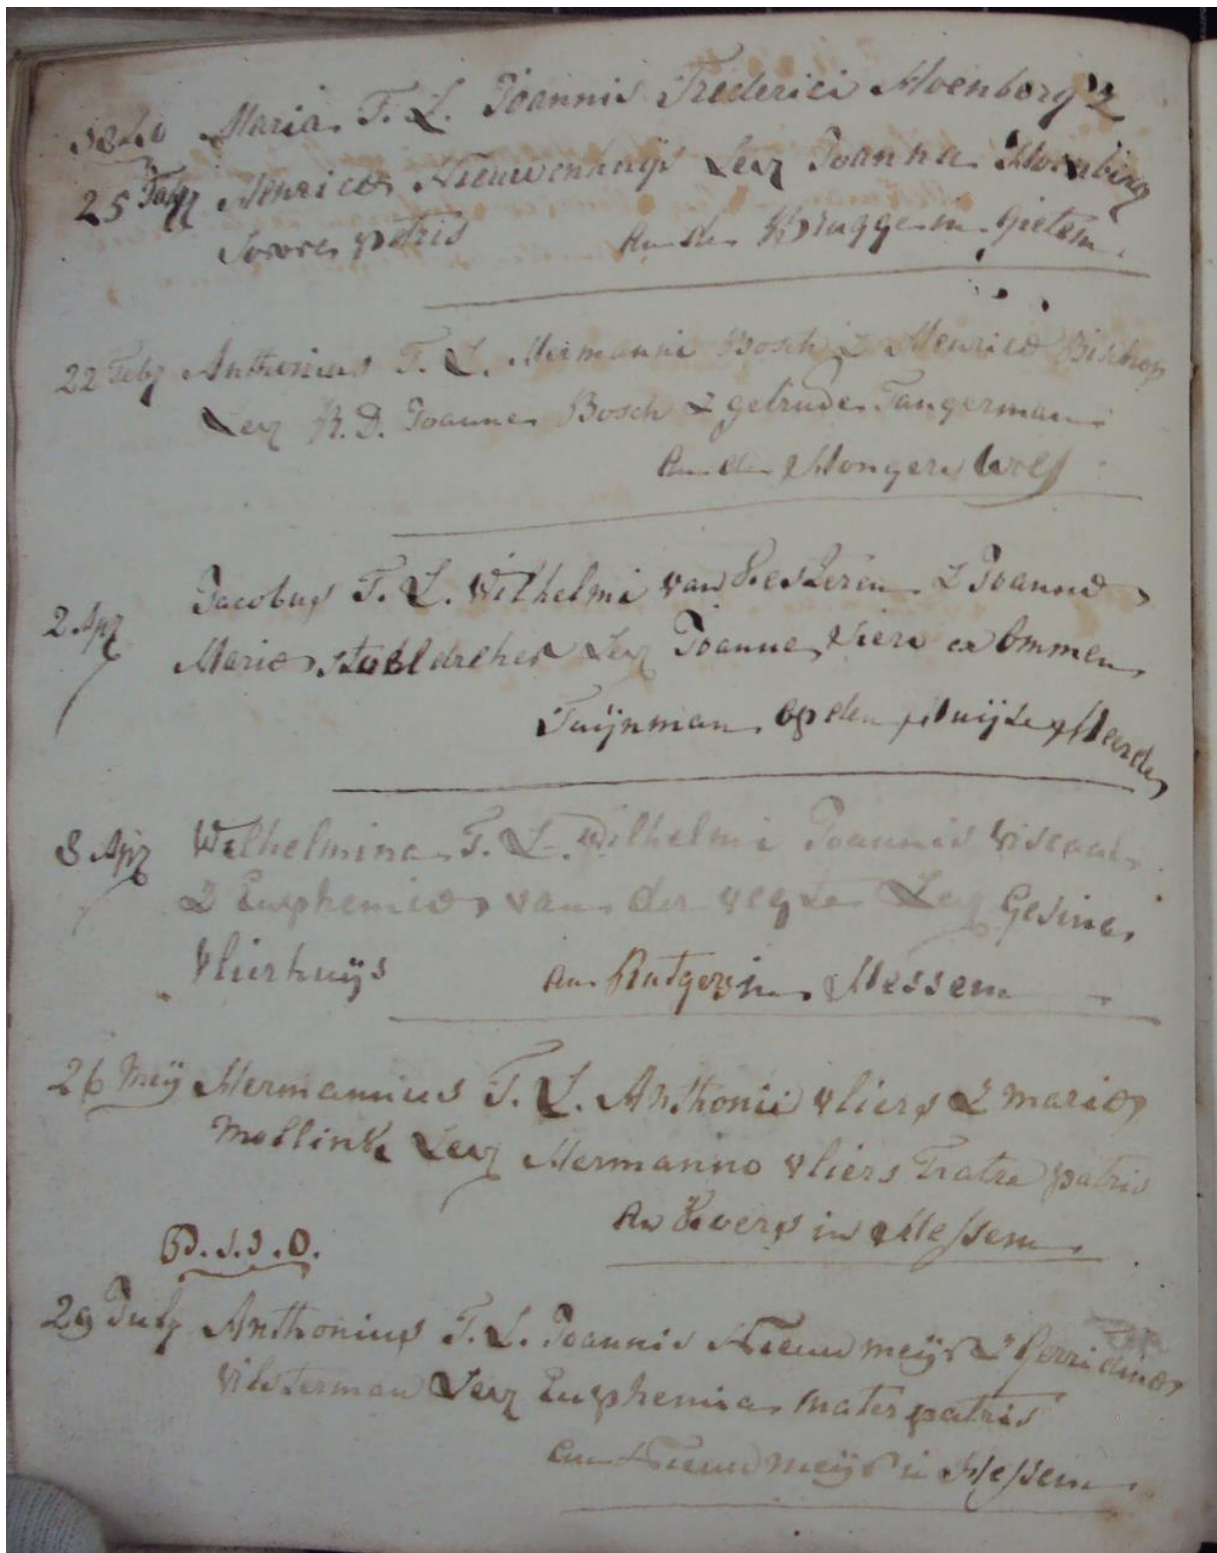 Maria F. L. Joannis Frederici Hoenborg &
25 Henricæ Nieuwenhuijs Lev Joanna Hoenborg
Sorore patris An der Bruggen in Gietem
22 Feb Anthonius F. L. Hermanni Bosch & Henricæ Bischop
Lev R. D. Joannes Bosch & getrudes Tangerman
An den Hongers Wolf
2 Apr Jacobus F. L. Wilhelmi van Besteren & Joannæ
Mariæ stoeldreher Lev Joanne Viere ex Ommen
Tuijnman op den Huijse
8 Apr Wilhelmina F. L. Wilhelmi Joannis Viscaal
& Euphemiæ van der vegte Lev Gesina
Vlierhuijs An Rutgers in Hessem
26 Meij Hermannus F. L. Anthonii vliers & mariæ
Mollink Lev Hermanno vliers Fratre patris
An Evers in Hessem
29 July Anthonius F. L. Joannis Nieuwmeijer & Gerridinæ
Vilsterman Lev Euphemia mater patris
An Nieuwmeijer in Hessem